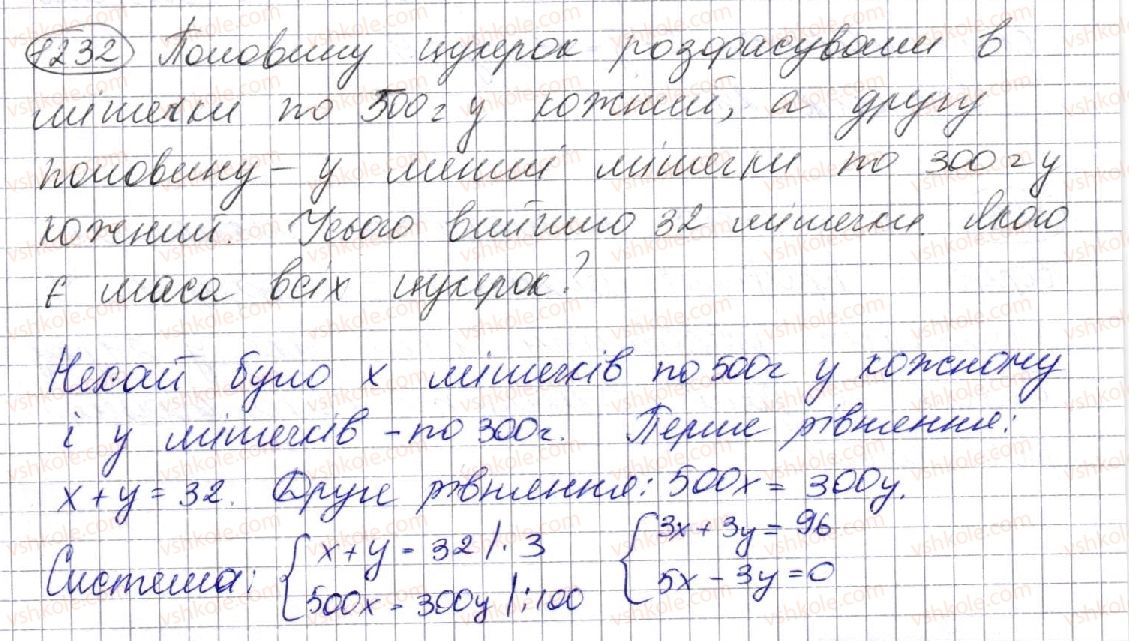 1232 Половину цукерок розфасували в
мішечки по 500г у кожний, а другу
половину – у менші мішечки по 300г у
кожний. Усього вийшло 32 мішечки. Якою
є маса всіх цукерок?
Нехай було x мішечків по 500г у кожному
і y мішечків – по 300г. Перше рівняння:
x + y = 32. Друге рівняння: 500x = 300y.
Система: { x + y = 32 /· 3 { 3x + 3y = 96
500x = 300y /:100 5x – 3y = 0